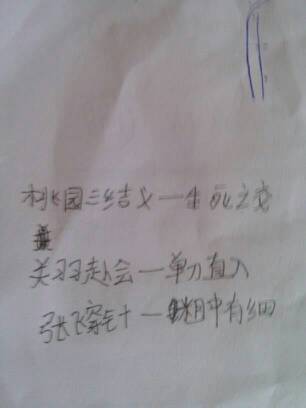 桃园三结义—生死之交
关羽赴会—单刀直入
张飞穿针—粗中有细